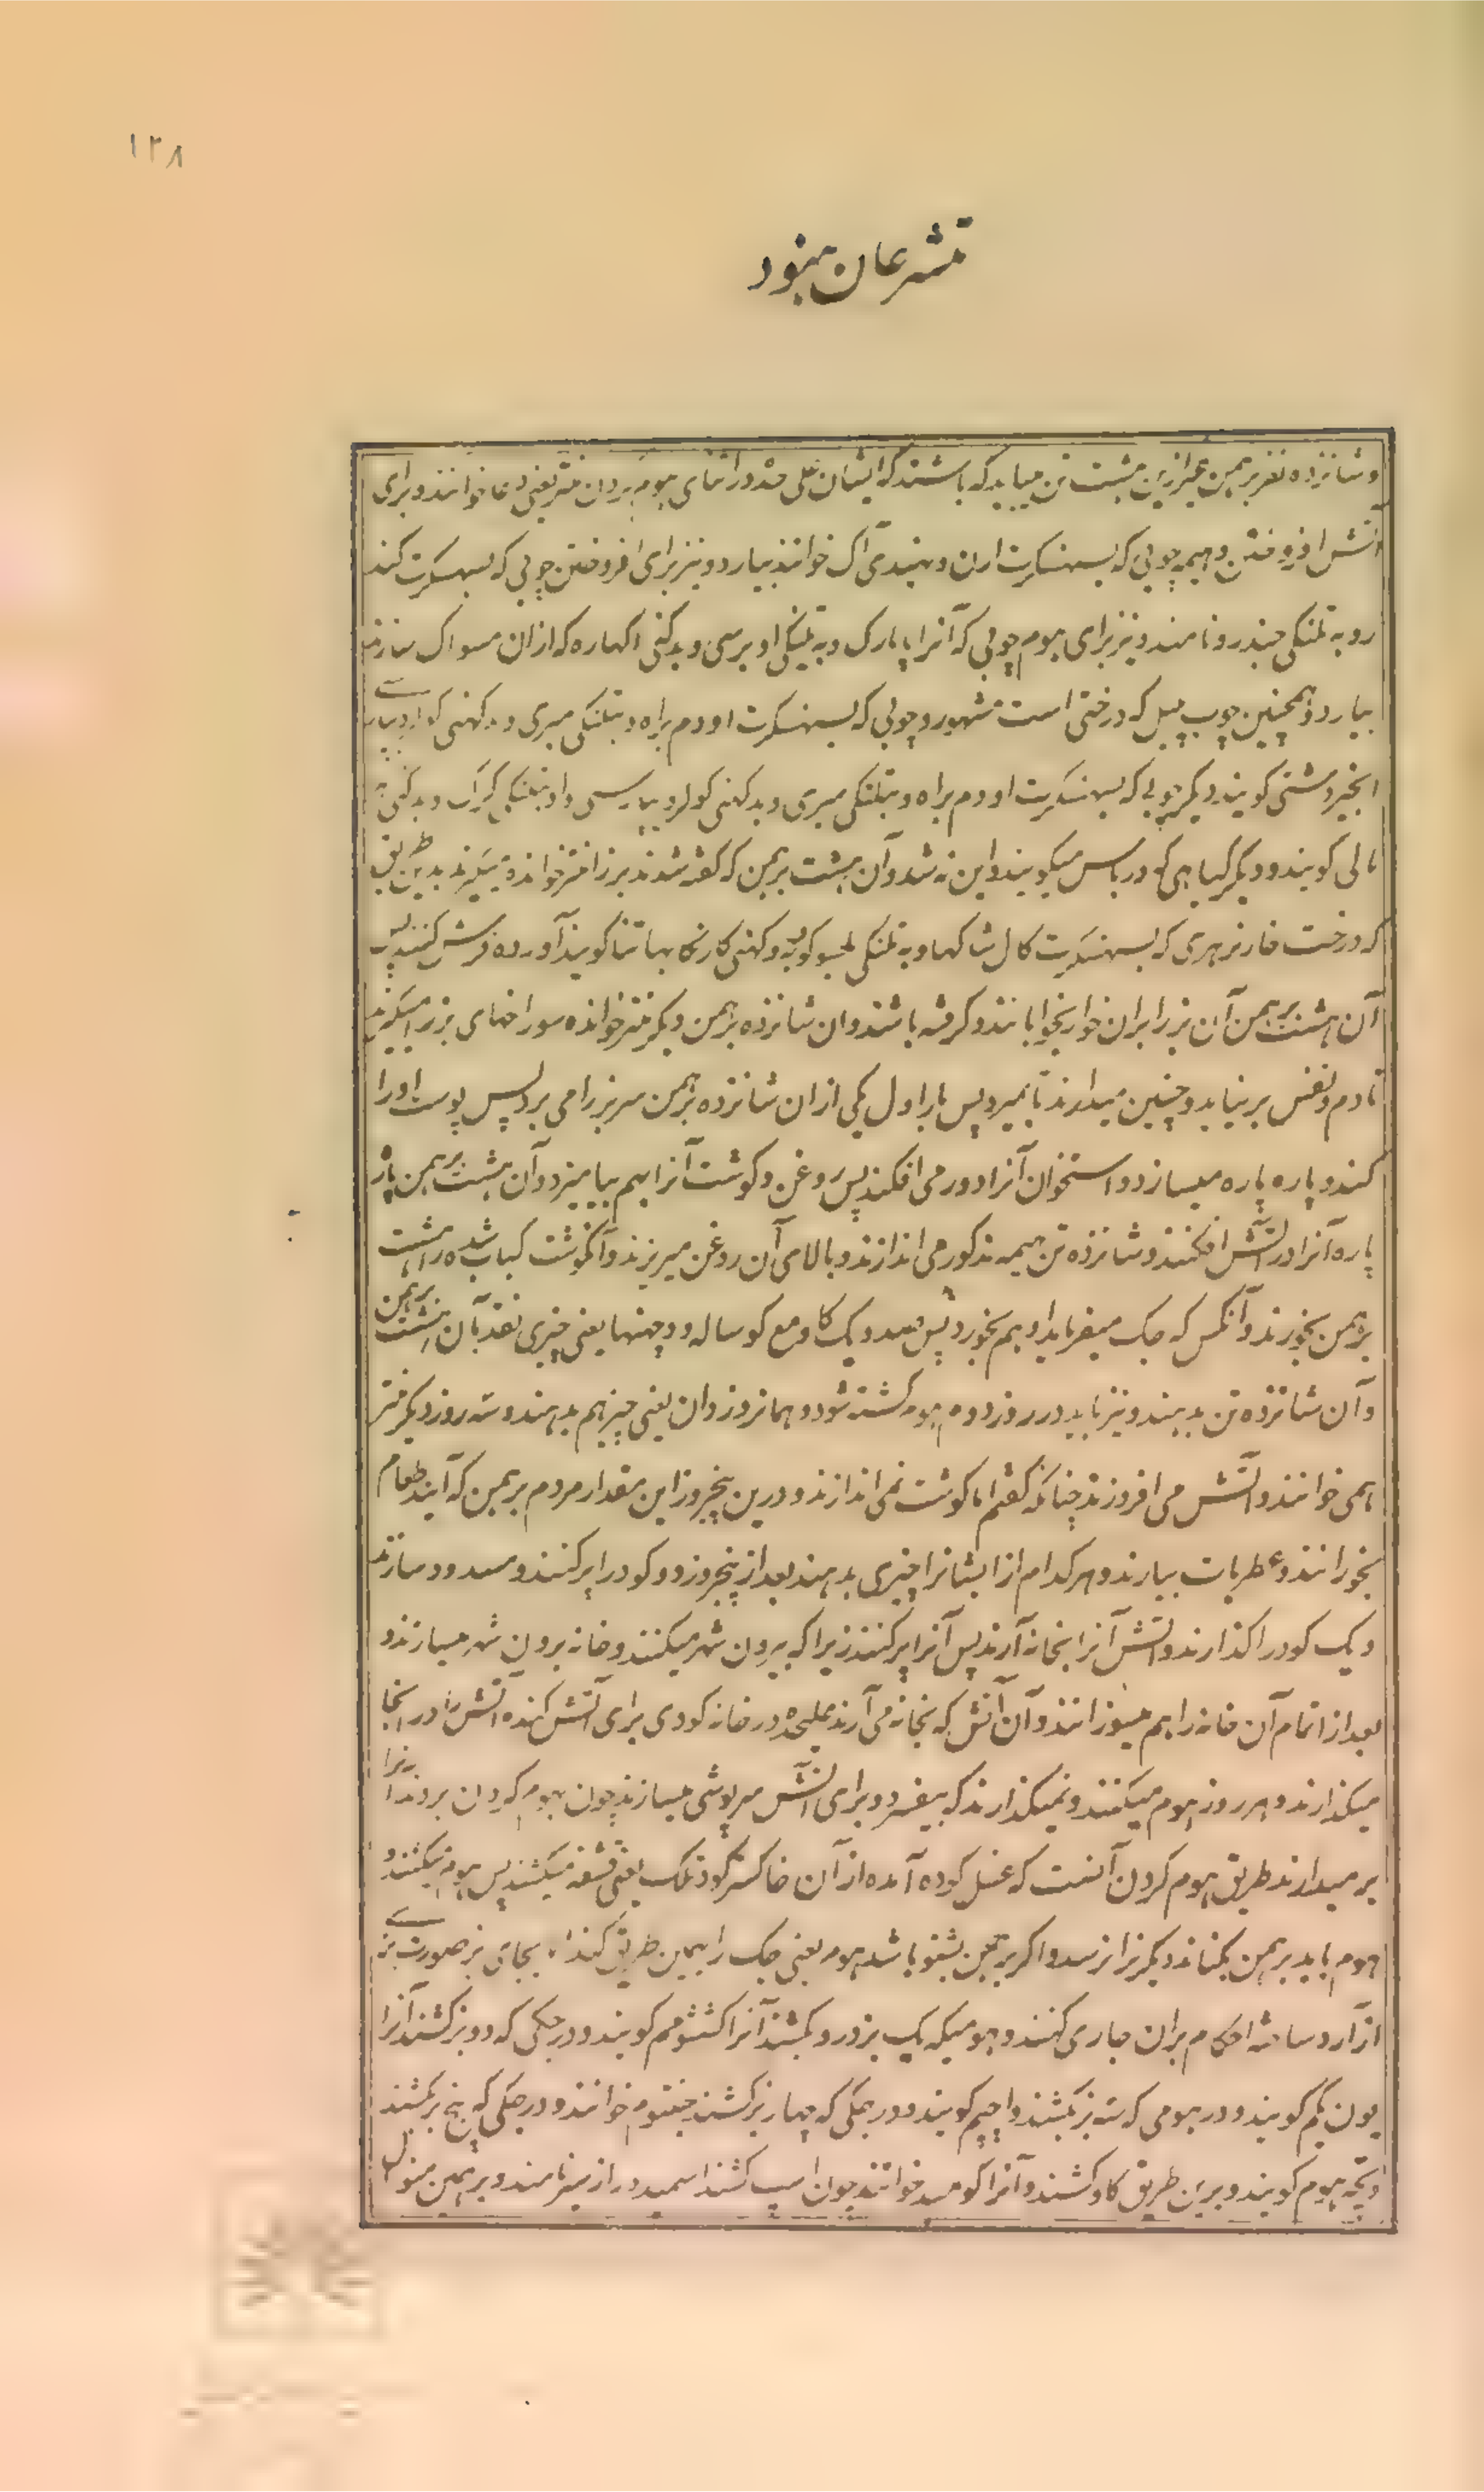 ۱۲۸
متشرعان هنود
و شانزده نفر برهمن غیر ازین هشت تن میباید که باشند که ایشان علی حده در اثنای هوم کردن منتر یعنی دعا خوانند و برای
آتش افروختن و هیمه چوبی که بسهنسکرت ارن و بهندی آک خوانند بیارد و نیز برای افروختن چوبی که بسهنسکرت کند
رو به تلنکی چندرو نامند و نیز برای هوم چوبی که آنرا اپارک و به تلنکی اوبرسی و بدکنی اکهاره که ازان مسواک سازند
بیارد و همچنین چوب پیپل که درختی است مشهور و چوبی که بسهنسکرت اودم براه و بتلنکی میری و بدکهنی کولر و بپارسے
انجیر دشتی کویند و دیکر چوبی که بسهنسکرت اودم براه و بتلنکی میری و بدکهنی کولر و بپارسی و بتلنکی و بدکنی
مالی کویند و دیکر کیاهی که دربا س میکویند و این نه شد و آن هشت برهمن که کفته شدند بر بز منتر خوانده میکیرند بدین طریق
که درخت خار بر بری که بسهنسکرت کال شاکها و به تلنکی کویند و دکهنی آورده فرش کنند پس
آن هشت برهمن آن بز را بران خوار بخوابانند و کرفته باشند و ان شانزده برهمن دیکر منتر خوانده سوراخهای بز را میکیرند
تا دم و نفس بر نیاید و چنین میدارند تا بمیرد پس بار اول یکی ازان شانزده برهمن سر بز را می برد پس پوست اورا
کند و پاره پاره میسازد و استخوان آنرا دور می افکند پس روغن و کوشت آنرا بهم بیامیزد و آن هشت برهمن پاره
پاره آنرا در آتش افکنند و شانزده تن هیمه مذکور می اندازند و بالای آن روغن میریزند و آنکوشت کباب شده را هشت
برهمن بخورند و آنکس که جک میفرماید او هم بخورد پس صد و یک کاو مع کوساله و دچهنها یعنی چیزی نقد بآن هشت برهمن
و آن شانزده تن بدهند و نیز باید در روز دوم هوم کشته شود و همانروز دان یعنی چیز هم بدهند و سه روز دیکر منتر
همی خوانند و آتش می افروزند چنانکه کفتم اما کوشت نمی اندازند و درین پنجروز این مقدار مردم برهمن که آیند طعام
بخورانند و عطریات بیارند و هر کدام از ایشانرا چیزی بدهند بعد از پنجروز دو کودر را پر کنند و مسدود سازند
و یک کودر را کذارند و آتش آنرا بخانه آرند پس آنرا پر کنند زیرا که بیرون شهر میکنند و خانه برون شهر میسازند و
بعد از اتمام آن خانه را هم میسوزانند و آن آتش که بخانه می آرند علیحده در خانه کودی برای آتش کنده آتش را در انجا
میکذارند و هر روز هوم میکنند و نمیکذارند که بیفسرد و برای آتش سرپوشی میسازند چون هوم کردن بروند آنرا
بر میدارند طریق هوم کردن آنست که غسل کرده آمده از آن خاکستر کود تلک یعنی قشقه میکشند پس هوم میکنند و
هوم باید برهمن بکناند دیکریرا نرسد و اکر برهمن بشنو باشد هوم یعنی جک را بهمین طریق کند اما بجای بز صورت بزے
از آرد ساخته احکام بران جاری کنند و هومیکه یک بز درو بکشند آنرا کویند و در جکی که دو بز کشند آنرا
کویند و در هومی که سه بز بکشند واجپیم کویند و در جکی که چهار بز کشند خوانند و در جکی که پنج بز بکشند
هوم کویند و برین طریق کاو کشند و آنرا کومید خوانند چون اسب کشند اسمید و از نیز نامند و برهمین منوال